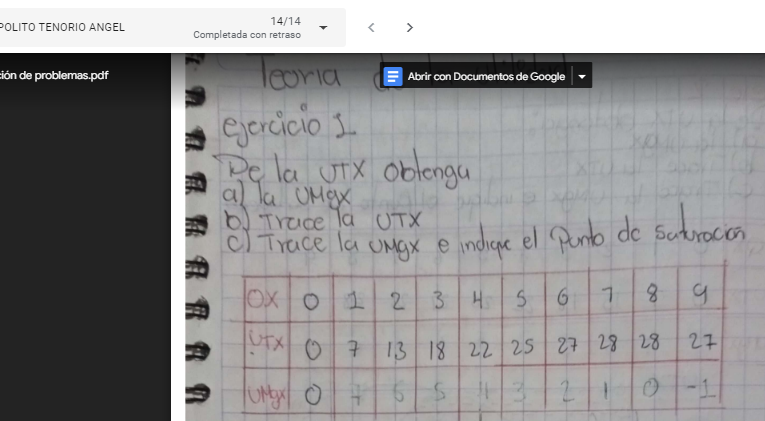 POLITO TENORIO ANGEL
14/14
Completada con retraso
ción de problemas.pdf
Abrir con Documentos de Google
Teoria
ejercicio 1
De la UTX obtenga
a) la UMgx
b) Trace la UTX
c) Trace la UMgx e indique el Punto de saturación
QX 0 1 2 3 4 5 6 7 8 9
UTX 0 7 13 18 22 25 27 28 28 27
UMgx 0 7 6 5 4 3 2 1 0 -1